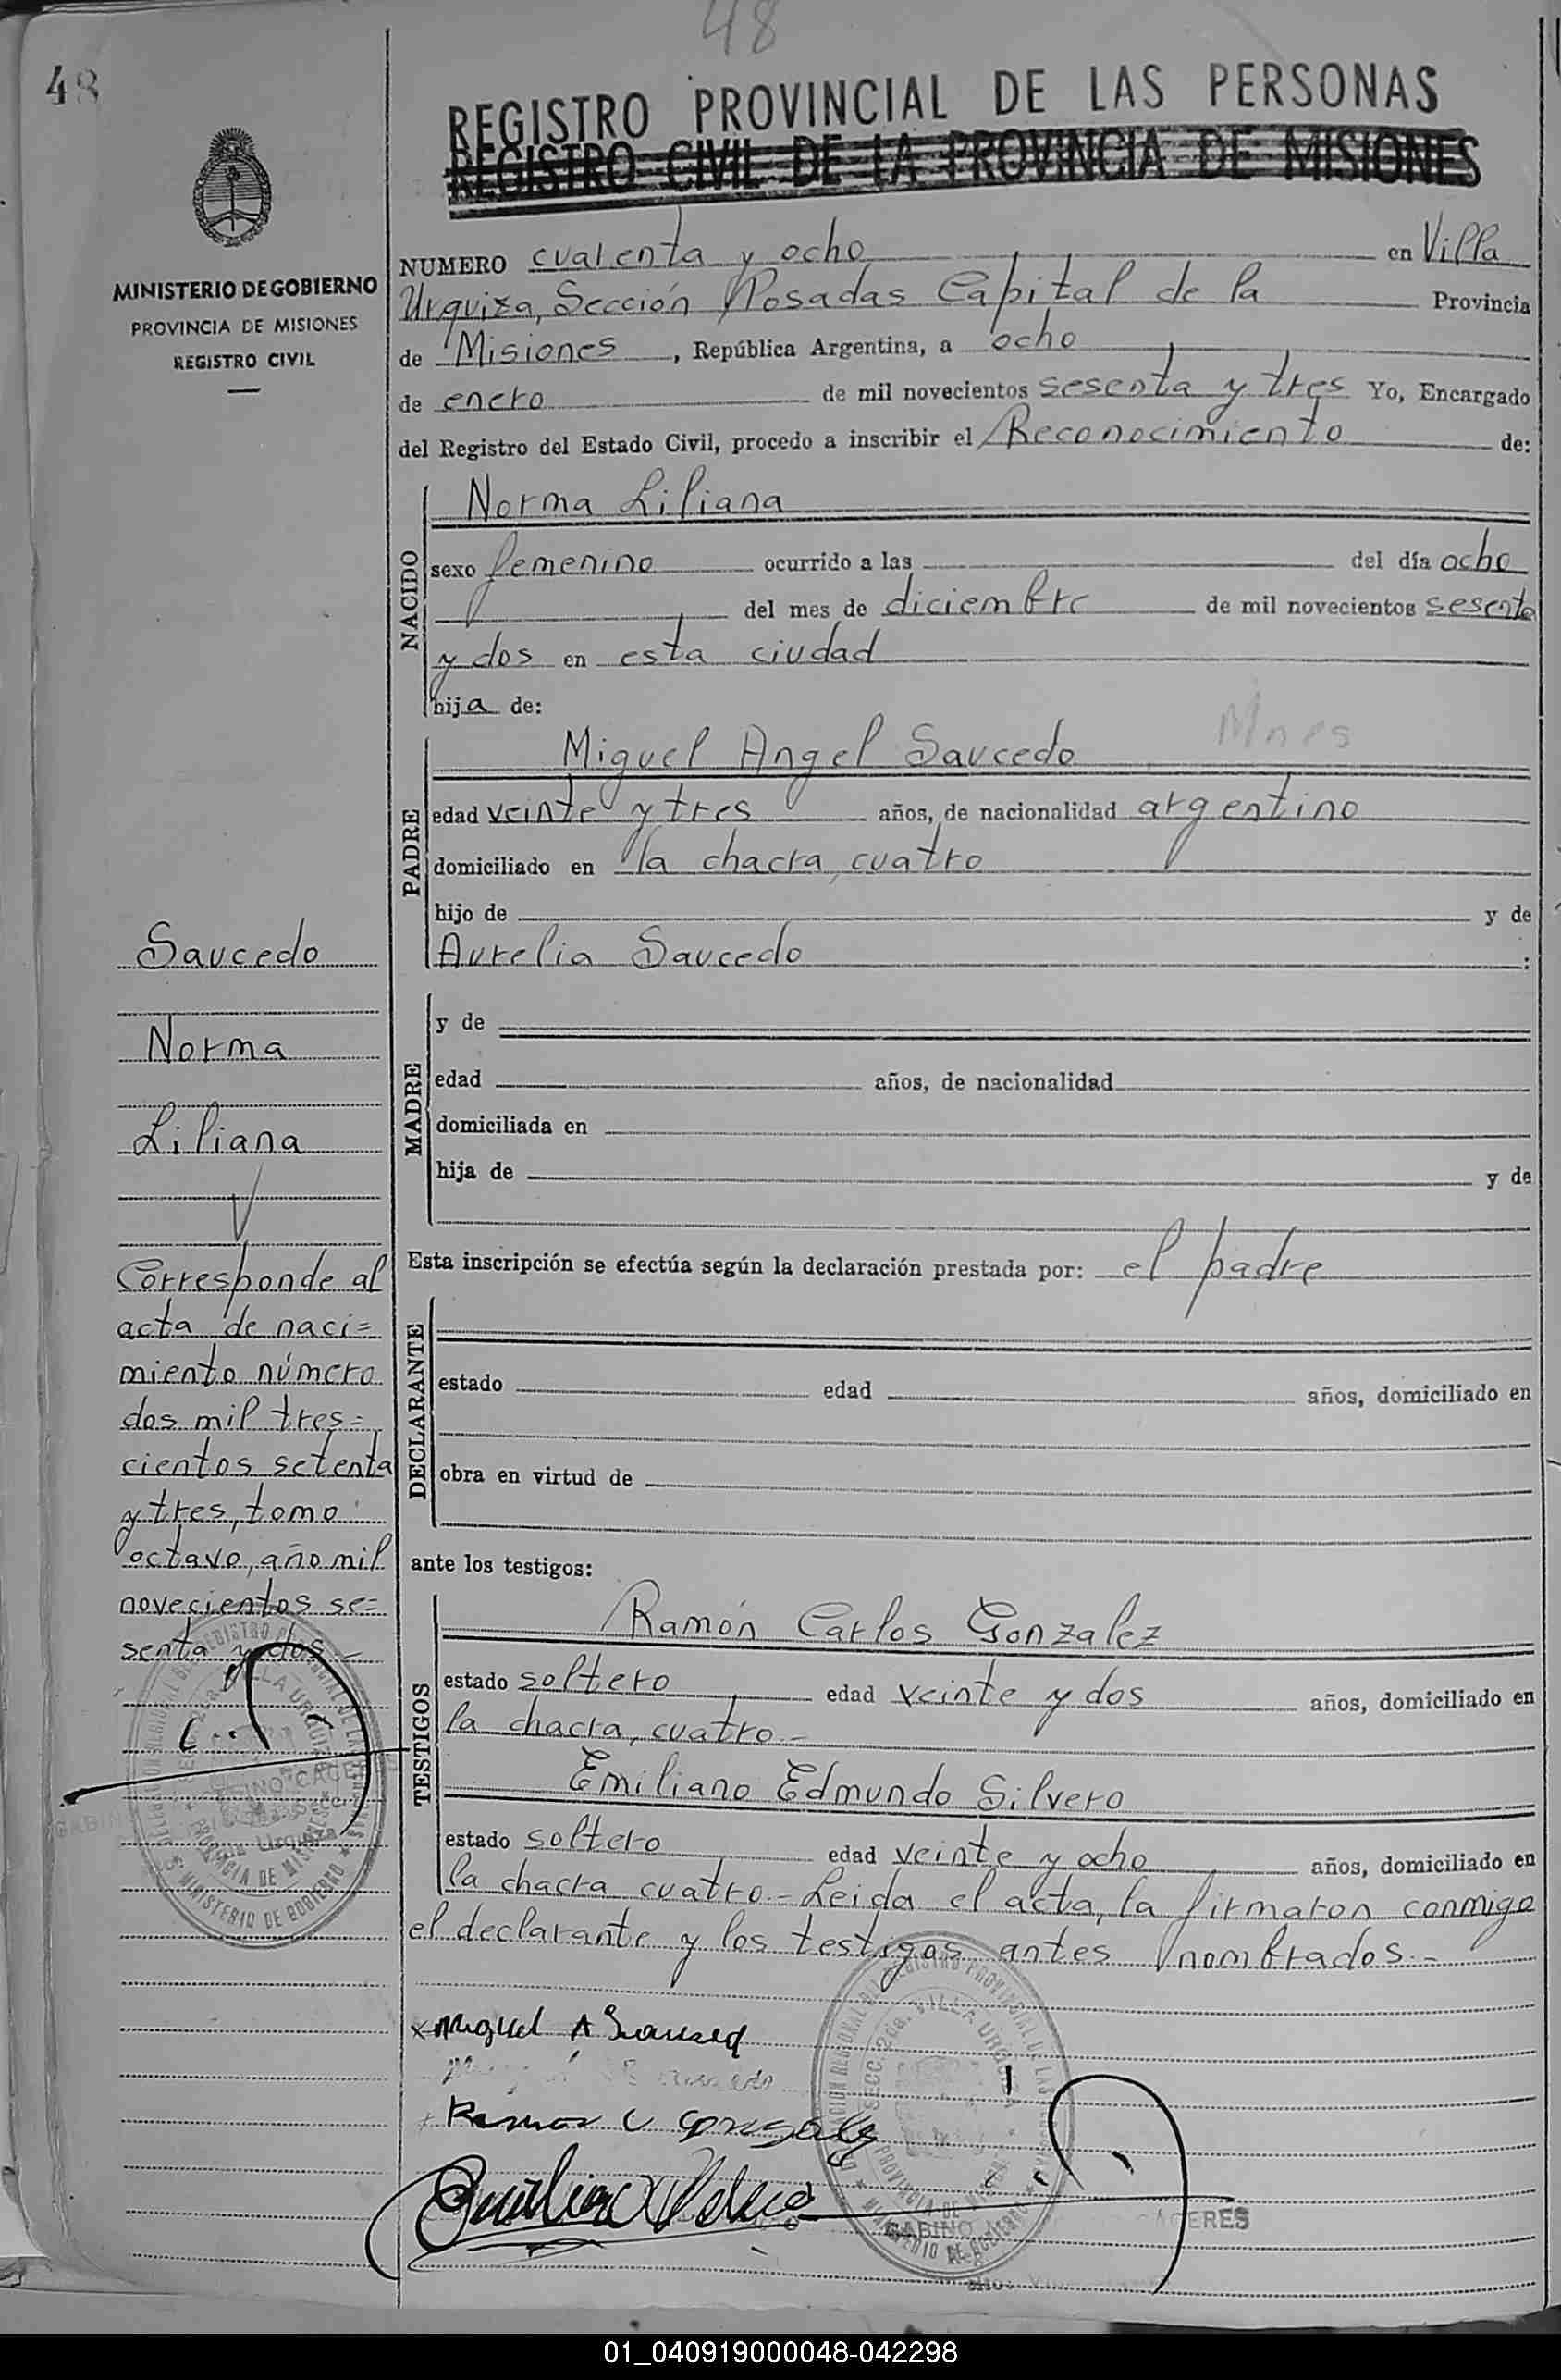 48
48
REGISTRO PROVINCIAL DE LAS PERSONAS
REGISTRO CIVIL DE LA PROVINCIA DE MISIONES
MINISTERIO DE GOBIERNO
PROVINCIA DE MISIONES
REGISTRO CIVIL
NUMERO cuarenta y ocho en Villa
Urquiza, Sección Posadas Capital de la Provincia
de Misiones, República Argentina, a ocho
de enero de mil novecientos sesenta y tres Yo, Encargado
del Registro del Estado Civil, procedo a inscribir el Reconocimiento de:
NACIDO
Norma Liliana
sexo femenino ocurrido a las del día ocho
del mes de diciembre de mil novecientos sesenta
y dos en esta ciudad
hija de:
PADRE
Miguel Angel Saucedo
Mnes
edad veinte y tres años, de nacionalidad argentino
domiciliado en la chacra, cuatro
hijo de y de
Aurelia Saucedo :
MADRE
y de
edad años, de nacionalidad
domiciliada en
hija de y de
Esta inscripción se efectúa según la declaración prestada por: el padre
DECLARANTE
estado edad años, domiciliado en
obra en virtud de
ante los testigos:
TESTIGOS
Ramón Carlos Gonzalez
estado soltero edad veinte y dos años, domiciliado en
la chacra, cuatro.-
Emiliano Edmundo Silvero
estado soltero edad veinte y ocho años, domiciliado en
la chacra cuatro.- Leida el acta, la firmaron conmigo
el declarante y los testigos antes nombrados.-
Saucedo
Norma
Liliana
Corresponde al
acta de naci=
miento número
dos mil tres=
cientos setenta
y tres, tomo
octavo, año mil
novecientos se=
senta y dos.-
MINISTERIO DE GOBIERNO
PROVINCIA DE MISIONES
x Miguel A Saucedo
Ramon C Gonzalez
SECC. 2da. VILLA URQUIZA
GABINO CACERES
01_040919000048-042298